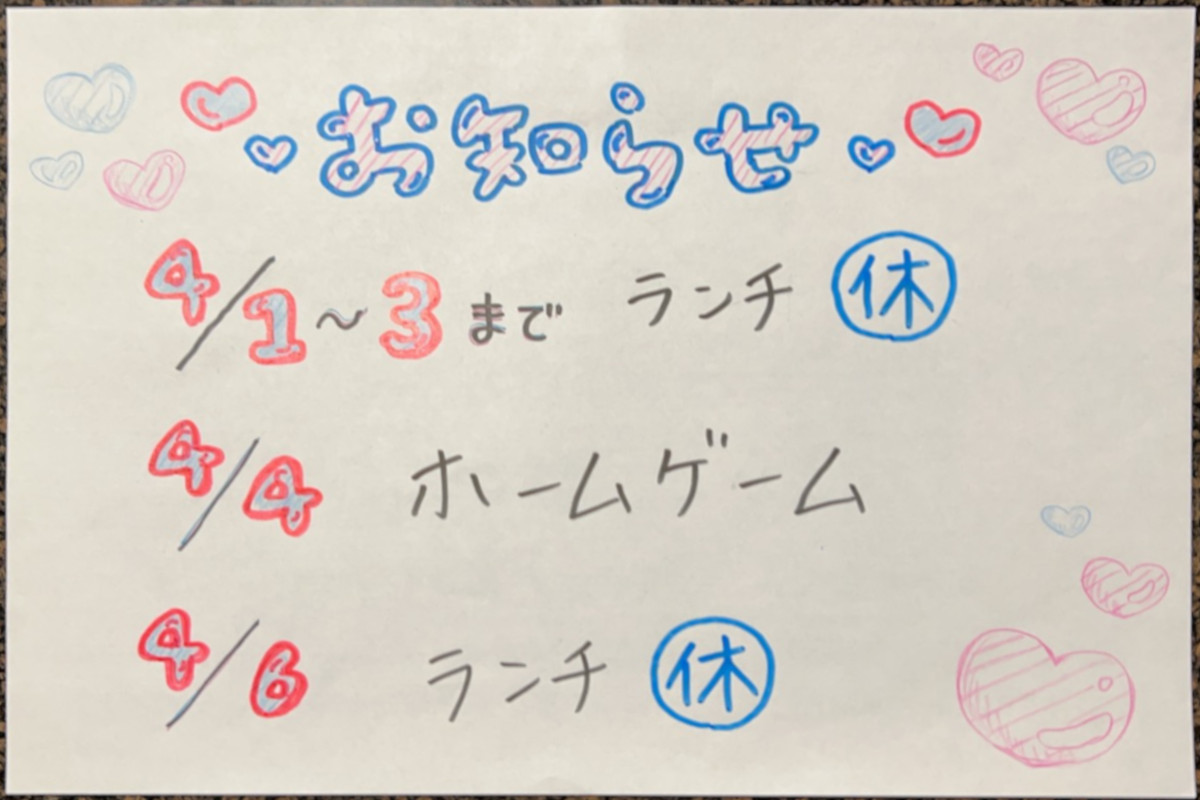 お知らせ
4/1~3まで ランチ 休
4/4 ホームゲーム
4/6 ランチ 休